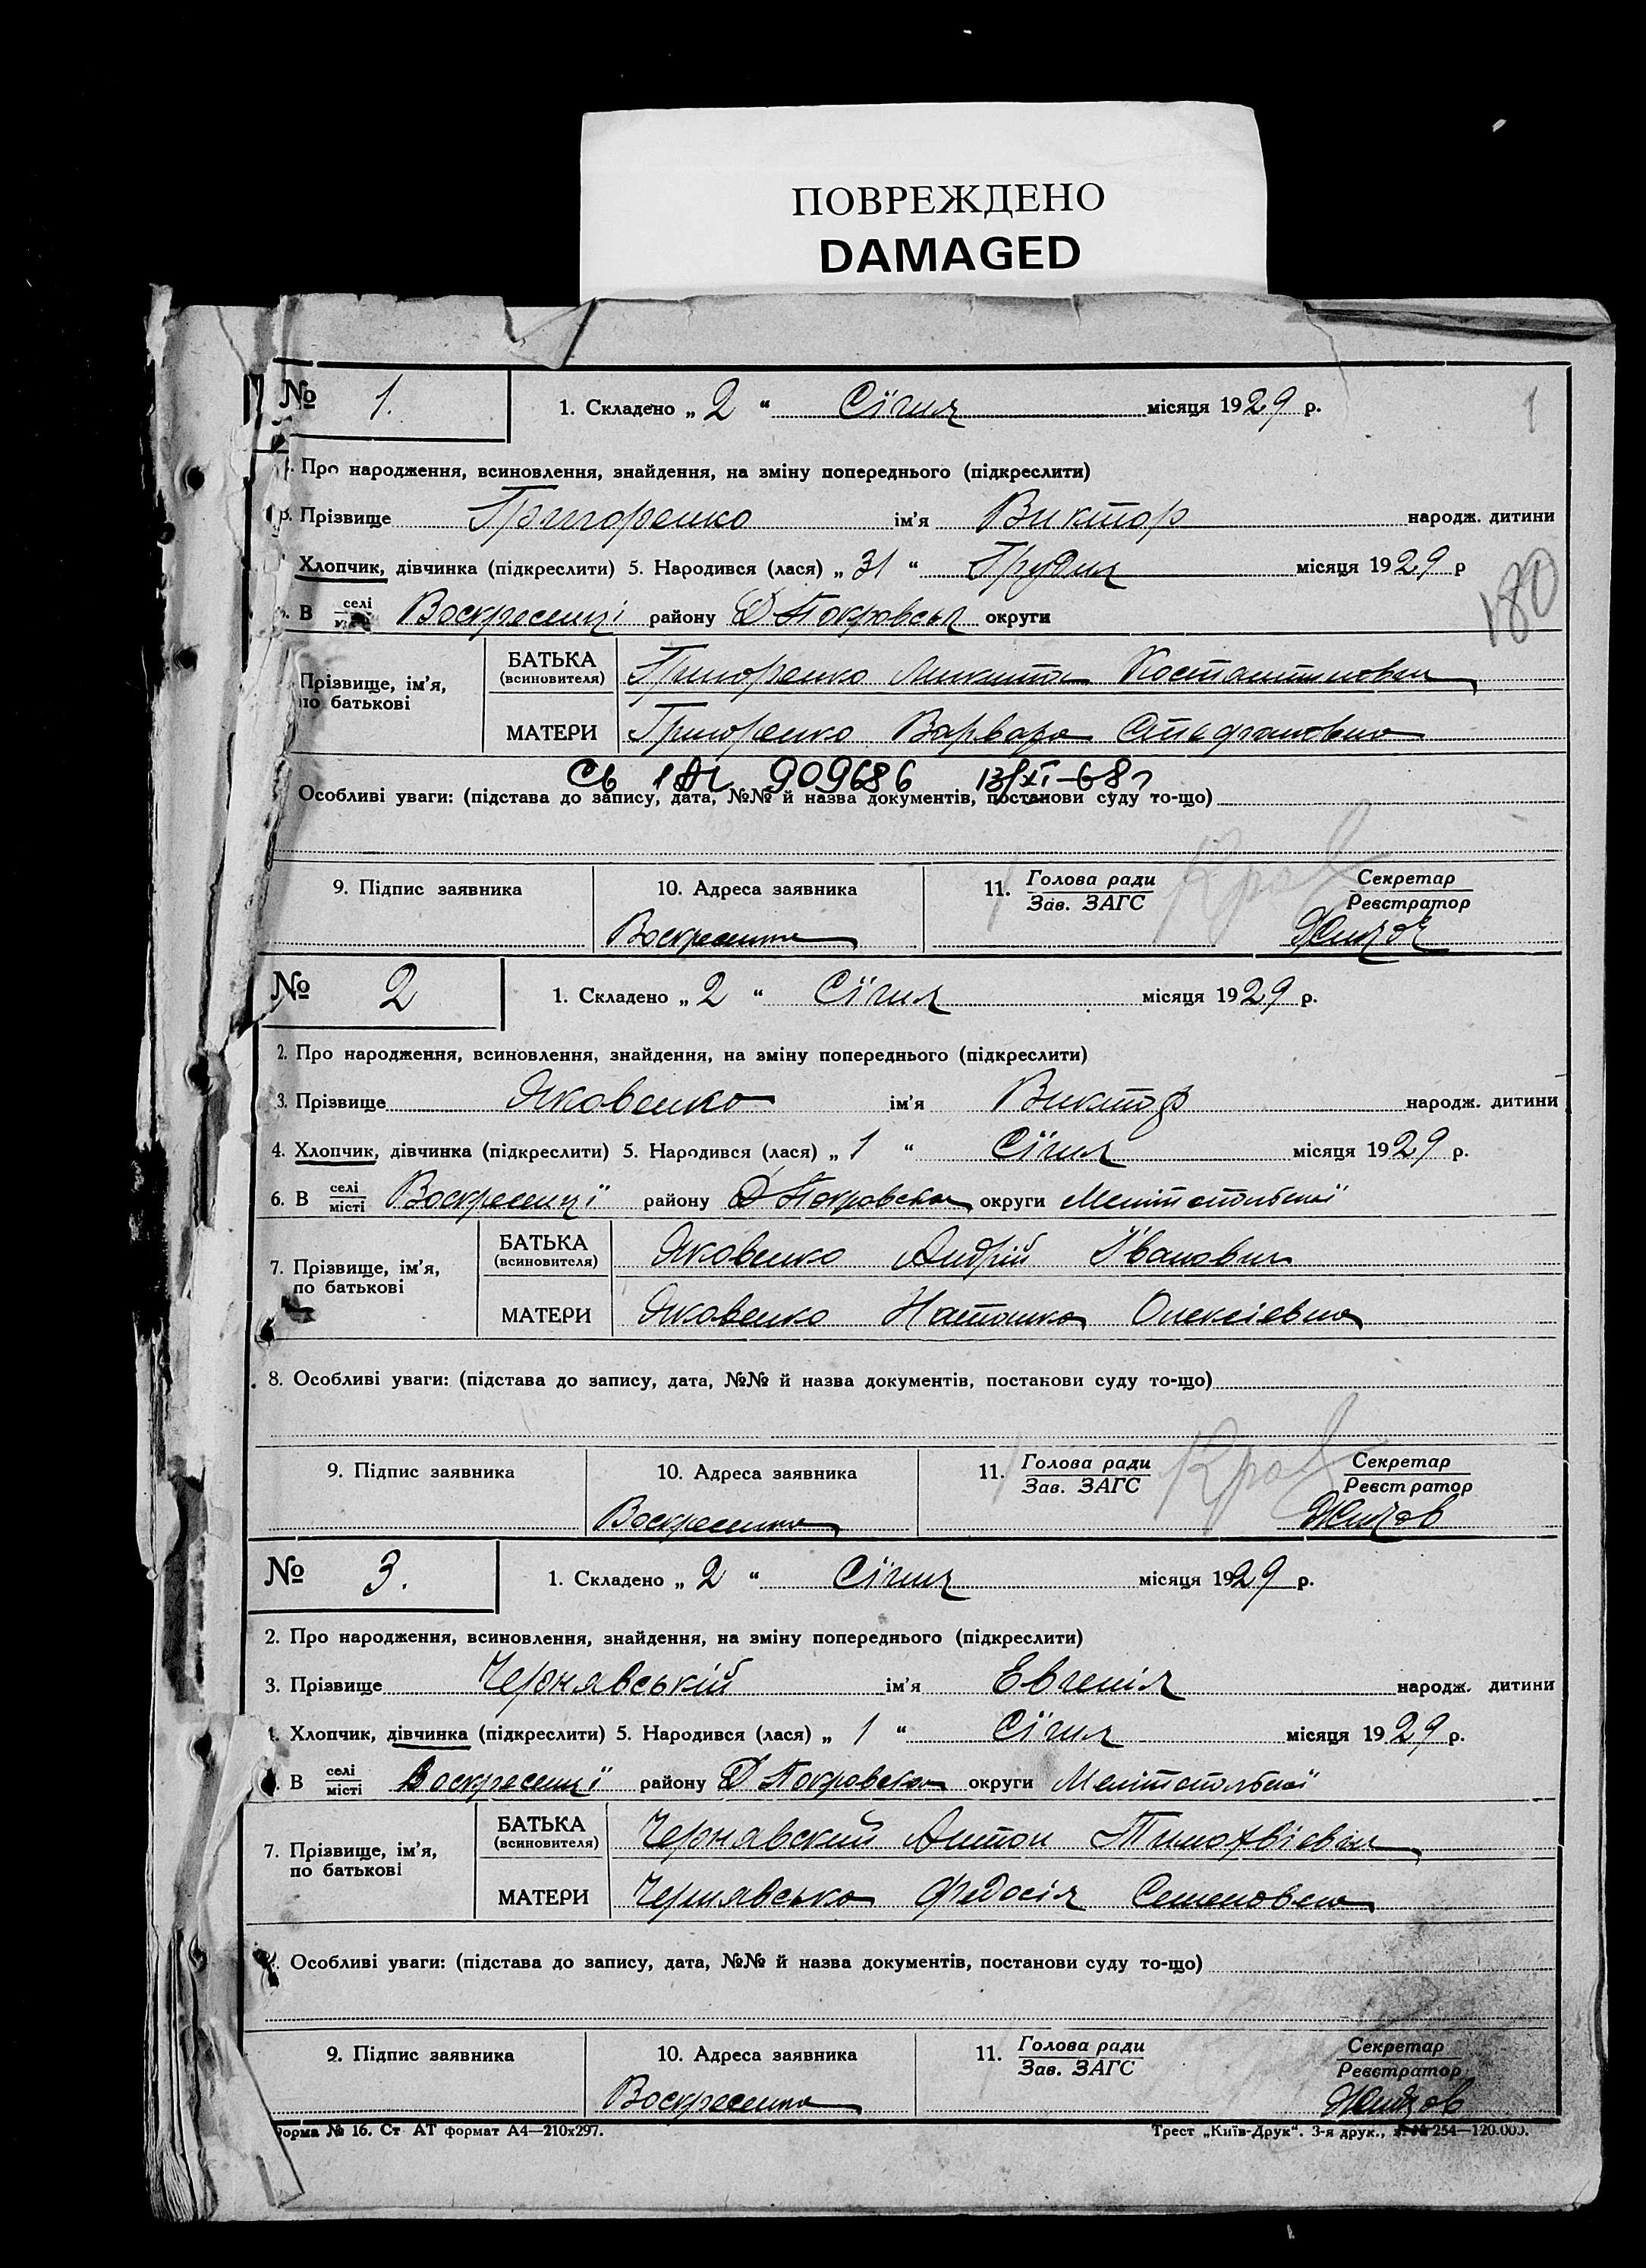 ПОВРЕЖДЕНО
DAMAGED
№ 1. 1. Складено „ 2 “ Січня місяця 1929 р. 1
Про народження, всиновлення, знайдення, на зміну попереднього (підкреслити)
3. Прізвище Григоренко ім’я Виктор народж. дитини
Хлопчик, дівчинка (підкреслити) 5. Народився (лася) „ 31 “ Грудня місяця 1929 р
180
В селі Воскресенці району Д Покровськ округи
Прізвище, ім’я, по батькові БАТЬКА (всиновителя) Григоренко Микита Костантинович
МАТЕРИ Григоренко Варвара Стефановна
Св 909686 13/XI-68г
Особливі уваги: (підстава до запису, дата, №№ й назва документів, постанови суду то-що)
9. Підпис заявника 10. Адреса заявника 11. Голова ради Секретар
Зав. ЗАГС Реєстратор
Воскресенка
№ 2 1. Складено „ 2 “ Січня місяця 1929 р.
2. Про народження, всиновлення, знайдення, на зміну попереднього (підкреслити)
3. Прізвище Яковенко ім’я Виктор народж. дитини
4. Хлопчик, дівчинка (підкреслити) 5. Народився (лася) „ 1 “ Січня місяця 1929 р.
6. В селі місті Воскресенці району Д Покровськ округи Мелітопольської
7. Прізвище, ім’я, по батькові БАТЬКА (всиновителя) Яковенко Андрій Іванович
МАТЕРИ Яковенко Наташка Олексієвна
8. Особливі уваги: (підстава до запису, дата, №№ й назва документів, постанови суду то-що)
9. Підпис заявника 10. Адреса заявника 11. Голова ради Секретар
Зав. ЗАГС Реєстратор
Воскресенка
№ 3. 1. Складено „ 2 “ Січня місяця 1929 р.
2. Про народження, всиновлення, знайдення, на зміну попереднього (підкреслити)
3. Прізвище Чернявській ім’я Евгенія народж. дитини
Хлопчик, дівчинка (підкреслити) 5. Народився (лася) „ 1 “ Січня місяця 1929 р.
В селі місті Воскресенці району Д Покровськ округи Мелітопольської
7. Прізвище, ім’я, по батькові БАТЬКА (всиновителя) Чернявский Антон Тимофвієвич
МАТЕРИ Чернявська Федосія Семеновна
Особливі уваги: (підстава до запису, дата, №№ й назва документів, постанови суду то-що)
9. Підпис заявника 10. Адреса заявника 11. Голова ради Секретар
Зав. ЗАГС Реєстратор
Воскресенка
орма № 16. Ст АТ формат А4—210х297. Трест „Київ-Друк“. 3-я друк., з. № 254—120.000.